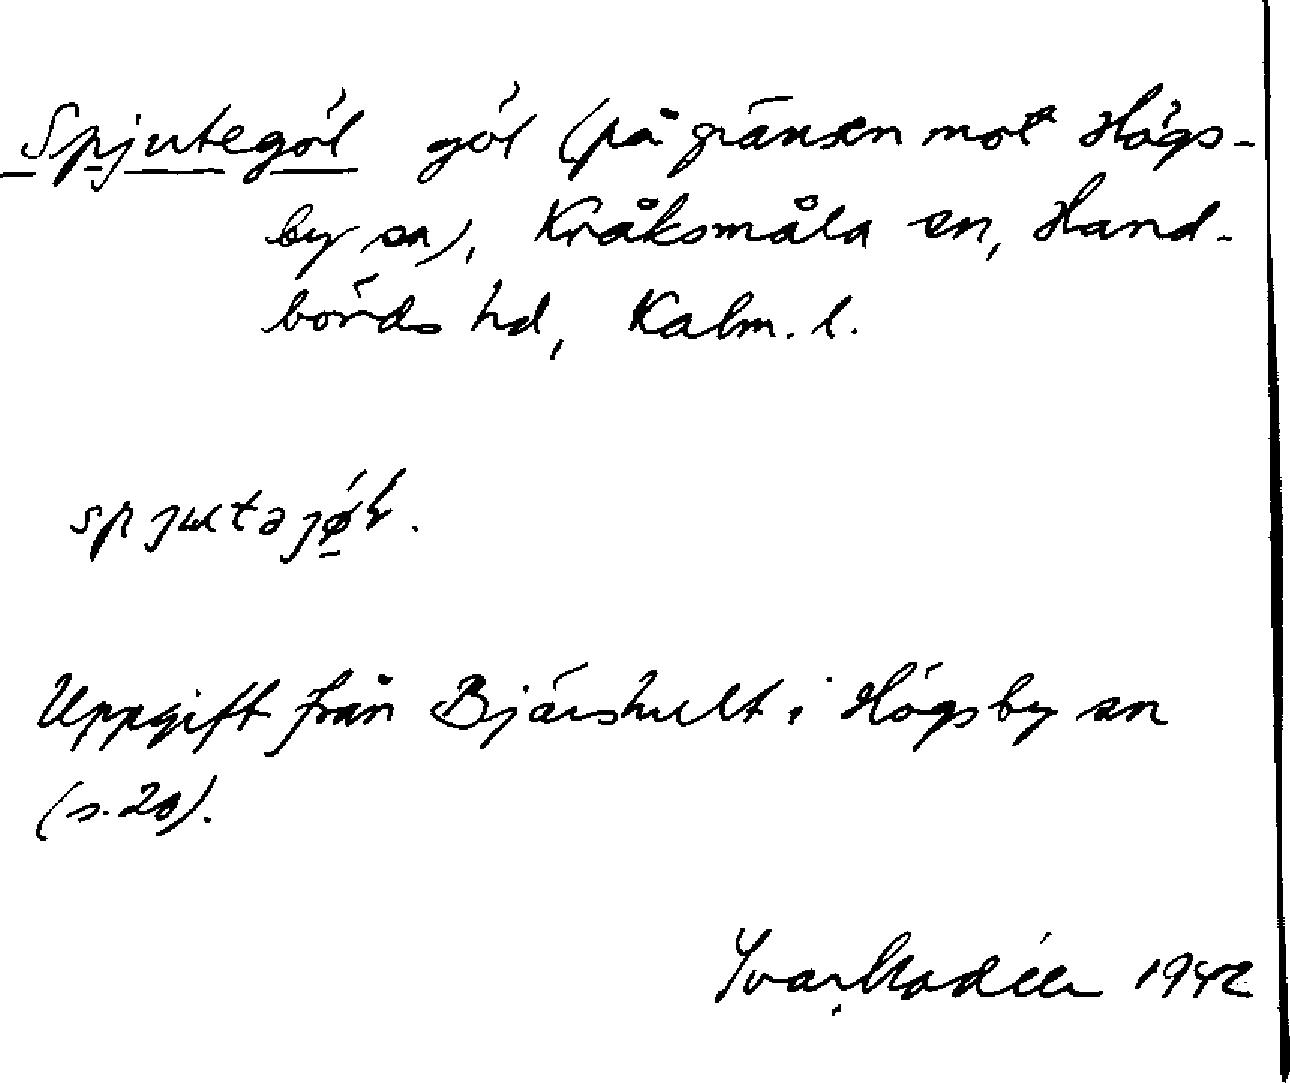 Spjutegöl göl (på gränsen mot Högs-
by sn), Kråksmåla sn, Hand-
börds hd, Kalm. l.
Uppgift från Bjärshult i Högsby sn
(s. 20).
Ivar Modéer 1942